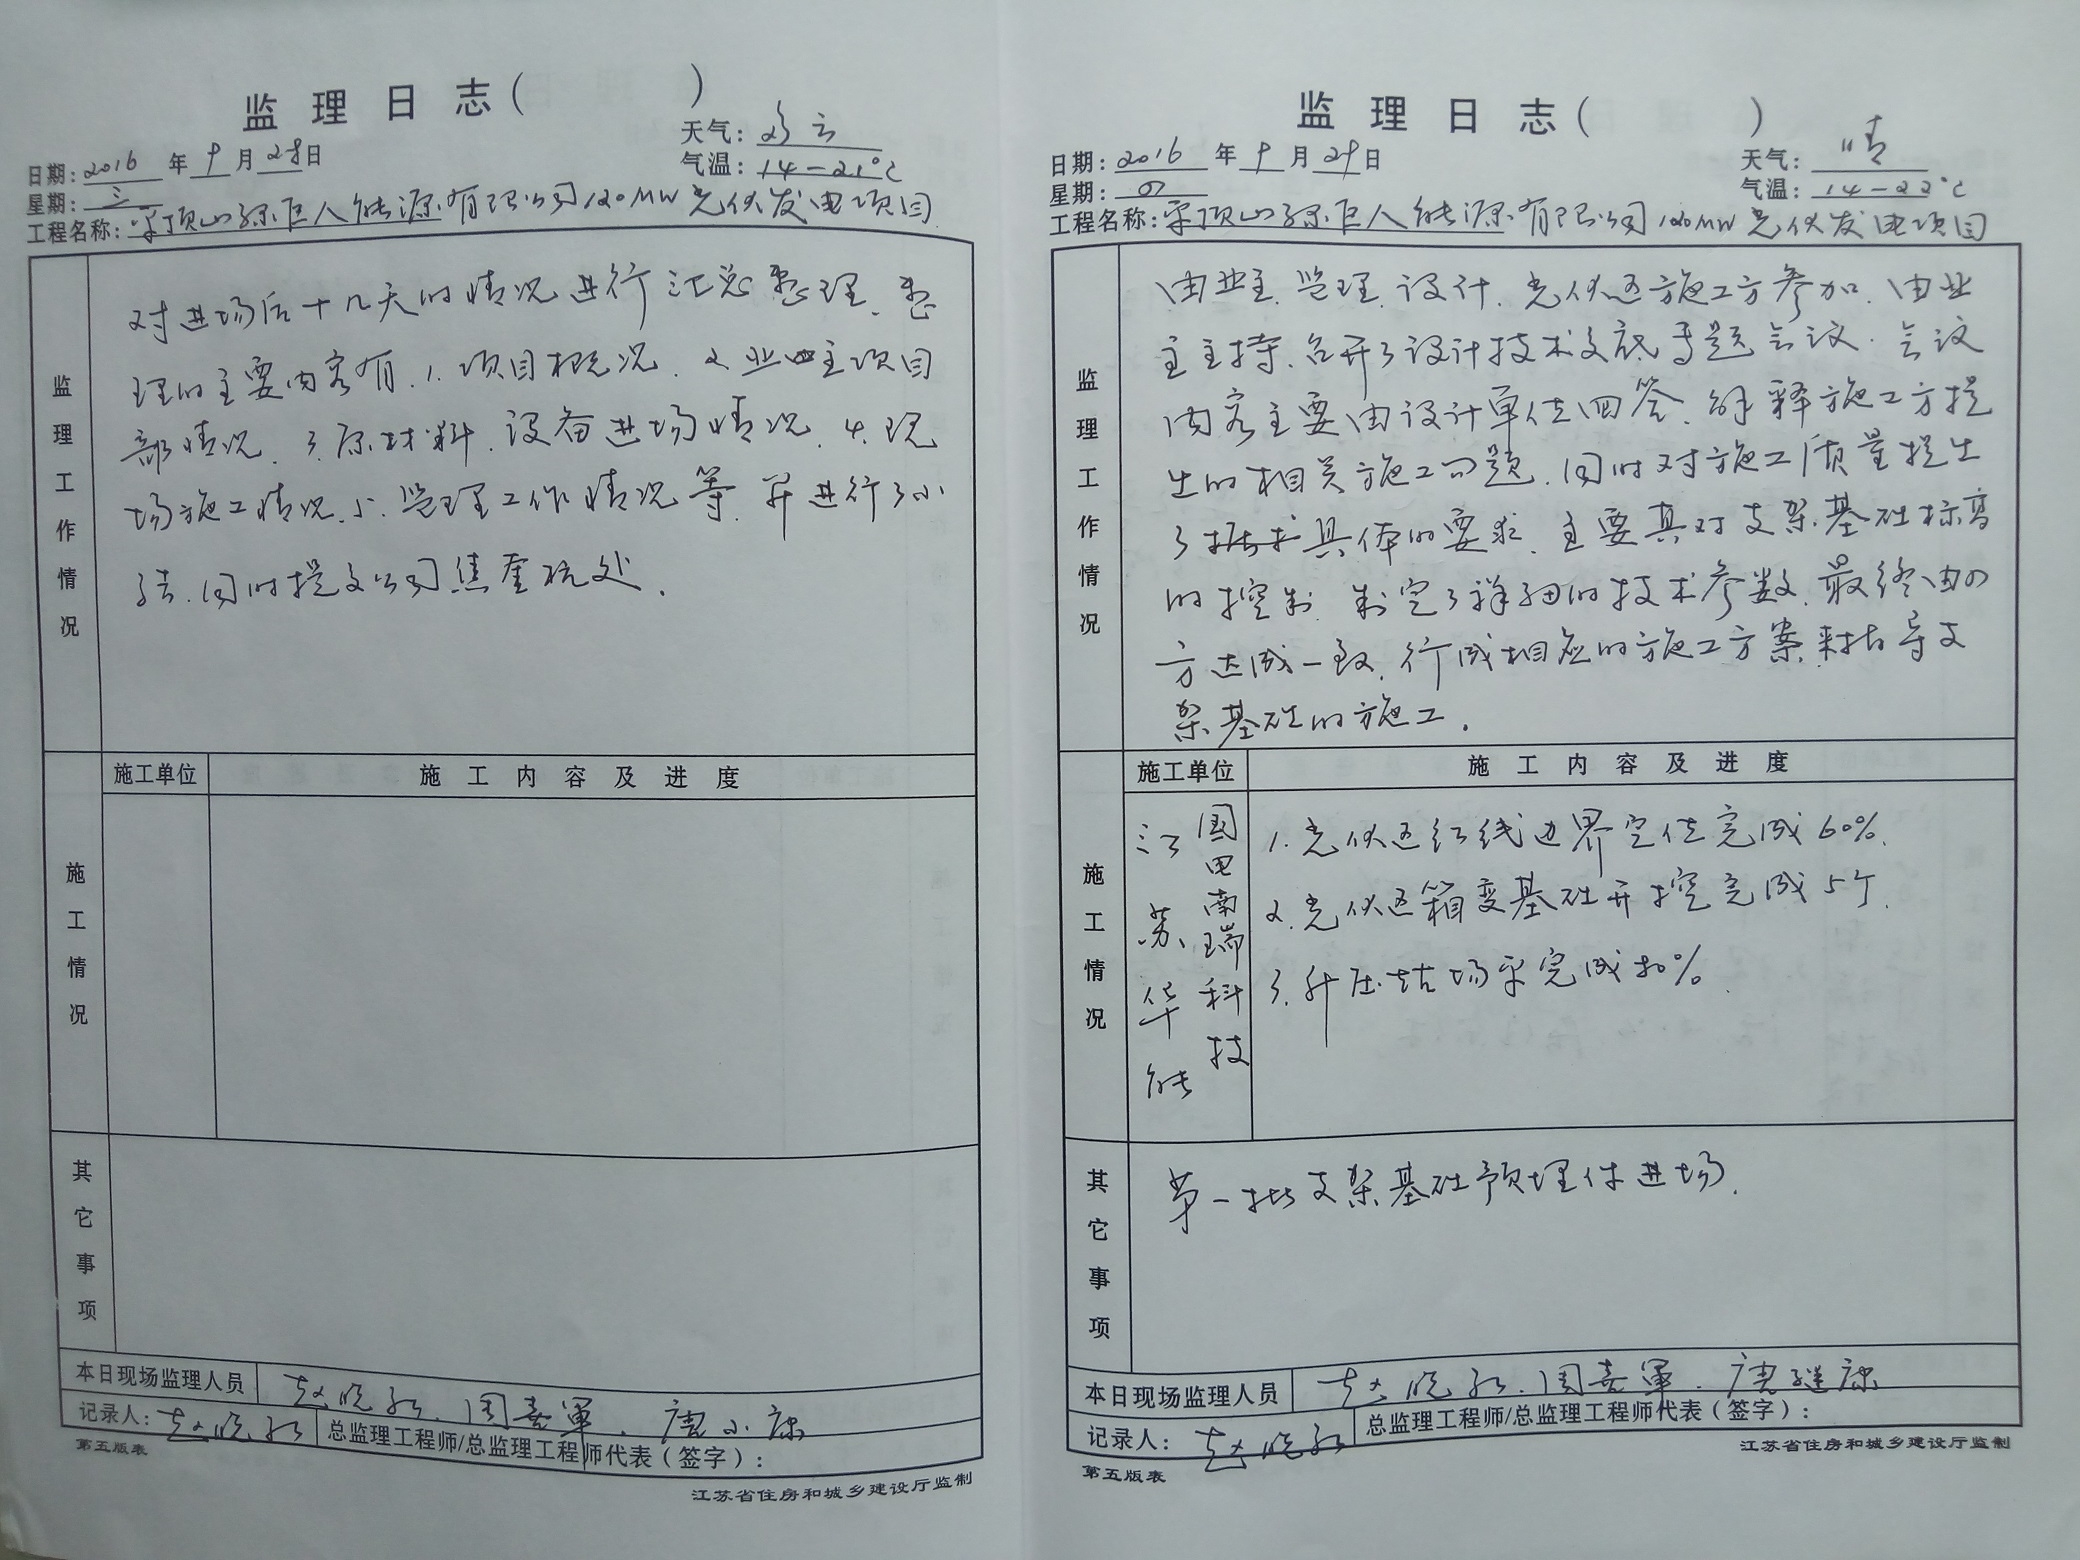 监理日志( )
日期:2016年9月28日
天气:多云
星期:三
气温:14-21℃
工程名称:平顶山绿巨人能源有限公司120MW光伏发电项目
监理工作情况
对进场后十几天的情况进行汇总整理、整
理的主要内容有、1.项目概况、2.业主项目
部情况、3.原材料、设备进场情况、4.现
场施工情况、5.监理工作情况等、并进行了小
结、同时提交公司焦奎杭处.
施工情况
施工单位
施工内容及进度
其它事项
本日现场监理人员
赵晓红、周喜军、唐小康
记录人:赵晓红
总监理工程师/总监理工程师代表(签字):
第五版表
江苏省住房和城乡建设厅监制
监理日志( )
日期:2016年9月29日
天气:晴
星期:四
气温:14-22℃
工程名称:平顶山绿巨人能源有限公司120MW光伏发电项目
监理工作情况
由业主、监理、设计、光伏区施工方参加、由业
主主持、召开了设计技术交底专题会议.会议
内容主要由设计单位回答、解释施工方提
出的相关施工问题、同时对施工质量提出
了具体的要求、主要真对支架基础标高
的控制、制定了详细的技术参数、最终由四
方达成一致、行成相应的施工方案来指导支
架基础的施工.
施工情况
施工单位
施工内容及进度
国电南瑞科技
江苏华能
1.光伏区红线边界定位完成60%.
2.光伏区箱变基础开挖完成5个.
3.升压站场平完成30%.
其它事项
第一批支架基础预埋件进场.
本日现场监理人员
赵晓红、周喜军、唐继康
记录人:赵晓红
总监理工程师/总监理工程师代表(签字):
第五版表
江苏省住房和城乡建设厅监制